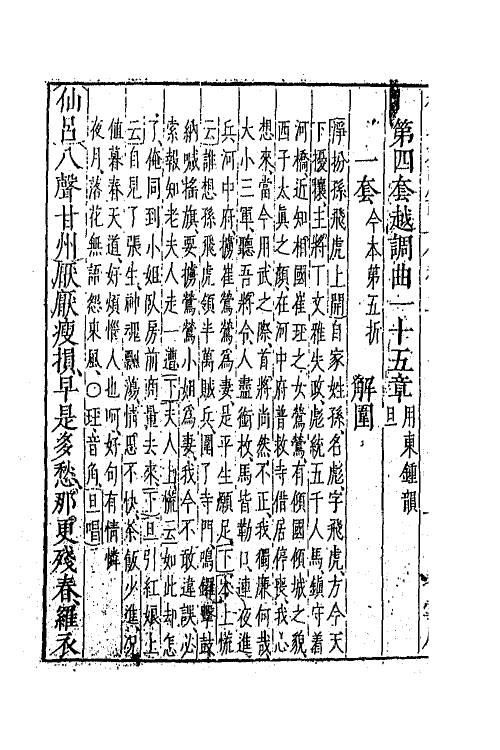 第四套越調曲一十五章用東鍾韻旦
一套今本第五折　解圍
淨扮孫飛虎上開自家姓孫名彪字飛虎方今天
下擾攘主將丁文雅失政彪統五千人馬鎮守着
河橋近知相國崔珏之女鶯鶯有傾國傾城之貌
西子太真之顏在河中府普救寺借居停喪我心
想來當今用武之際首將尚然不正我獨廉何哉
大小三軍聽吾將令人盡銜枚馬皆勒口連夜進
兵河中府擄崔鶯鶯為妻是平生願足下本上慌
云誰想孫飛虎領半萬賊兵圍了寺門鳴鑼擊鼓
納喊搖旗要擄鶯鶯小姐為妻我今不敢違誤必
索報知老夫人走一遭下夫人上慌云如此却怎
了俺同到小姐臥房前商量去來下旦引紅娘上
云自見了張生神魂飄蕩情思不快茶飯少進況
值暮春天道好煩惱人也呵好句有情憐
夜月落花無語怨東風○珏音角旦唱
仙呂八聲甘州厭厭瘦損早是多愁那更殘春羅衣